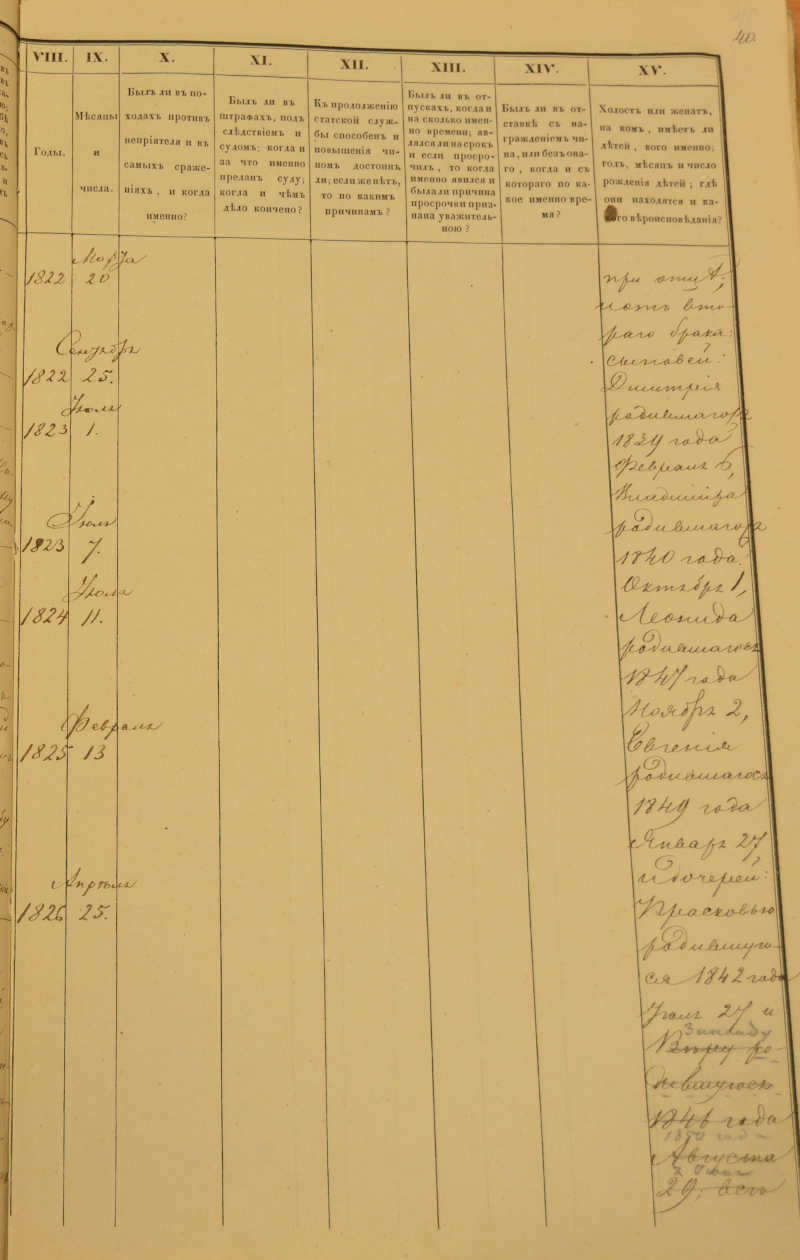 40
VIII.
IX.
X.
XI.
XII.
XIII.
XIV.
XV.
Годы.
Мѣсяцы
и
числа.
Былъ ли въ по-
ходахъ противъ
непріятеля и въ
самыхъ сраже-
ніяхъ, и когда
именно?
Былъ ли въ
штрафахъ, подъ
слѣдствіемъ и
судомъ; когда и
за что именно
преданъ суду;
когда и чѣмъ
дѣло кончено?
Къ продолженію
статской служ-
бы способенъ и
повышенія чи-
номъ достоинъ
ли; если же нѣтъ,
то по какимъ
причинамъ?
Былъ ли въ от-
пускахъ, когда и
на сколько имен-
но времени; яв-
лялся ли на срокъ
и если просро-
чилъ, то когда
именно явился и
была ли причина
просрочки приз-
нана уважитель-
ною?
Былъ ли въ от-
ставкѣ съ на-
гражденіемъ чи-
на, или безъ она-
го, когда и съ
котораго по ка-
кое именно вре-
мя?
Холостъ или женатъ,
на комъ, имѣетъ ли
дѣтей, кого именно;
годъ, мѣсяцъ и число
рожденія дѣтей; гдѣ
они находятся и ка-
го вѣроисповѣданія?
Марта
1822 20
Сентября
1822 25.
Іюля
1823 1.
Іюля
1823 7.
Іюля
1824 11.
Февраля
1825 13
Апрѣля
1826 25.
при отцѣ,
и отъ вто-
раго брака:
сыновей:
Дмитрія
родившагося
1839 года
Февраля 6,
Владиміра
родившагося
1840 года
Октября 1,
Леонида
родившагося
1847 года
Ноября 2,
Евгенія
родившагося
1849 года
Января 27
и дочерей:
Прасковью
родившую-
ся 1842 года
Іюля 27 и
Зинаиду
ро-
дившуюся
года
1850 года
Августа
29,